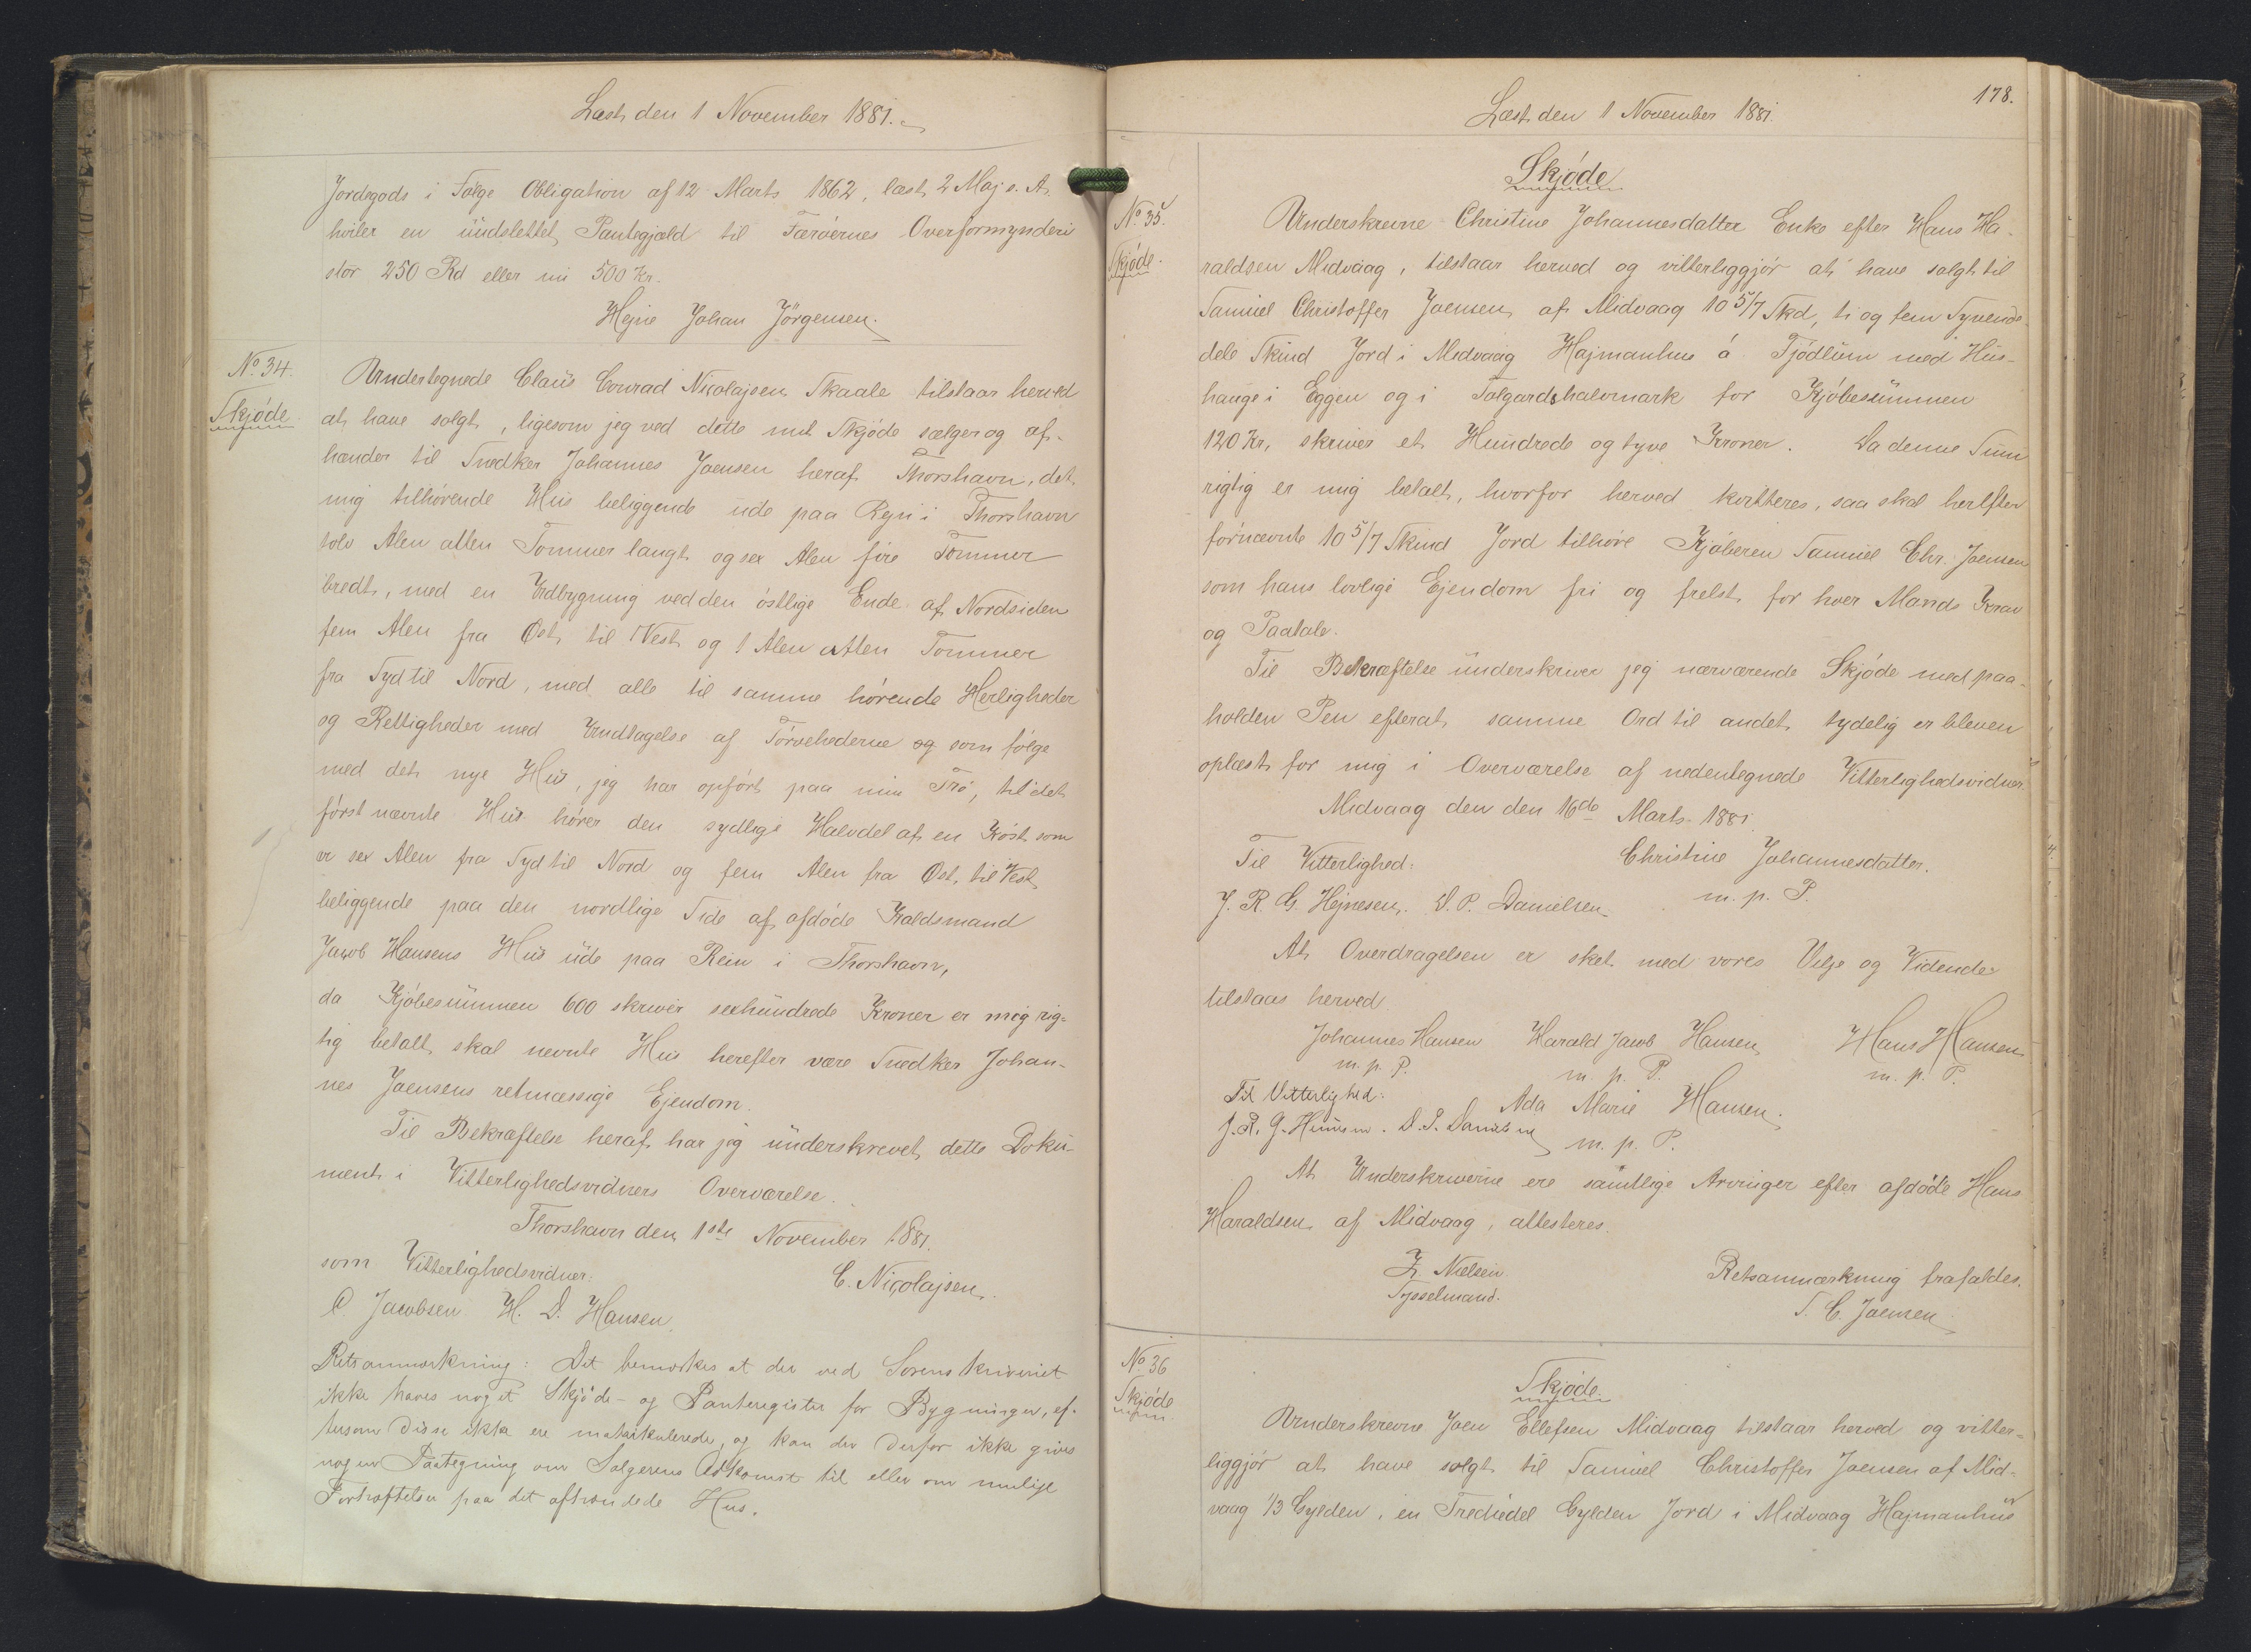 Læst den 1 November 1881.
Jordegods i Følge Obligation af 12 Marts 1862, læst 2 Maj s. A.
hviler en uudslettet Pantegjæld til Færøernes Overformynderi
stor 250 Rd eller nu 500 Kr.
Hejne Johan Jörgensen.
No. 34.
Skjøde
Undertegnede Claus Conrad Nicolajsen Skaale tilstaar herved
at have solgt, ligesom jeg ved dette mit Skjøde sælger og af-
hænder til Snedker Johannes Joensen heraf Thorshavn, det
mig tilhørende Hus beliggende ude paa Reyn i Thorshavn
tolv Alen atten Tommer langt og sex Alen fire Tommer
bredt, med en Udbygning ved den østlige Ende af Nordsiden
fem Alen fra Øst til Vest og 1 Alen atten Tommer
fra Syd til Nord, med alle til samme hørende Herligheder
og Rettigheder med Undtagelse af Tørvehederne og som følge
med det nye Hus, jeg har opført paa min Trø, til det
først nævnte Hus hører den sydlige Halvdel af en Krøst som
er sex Alen fra Syd til Nord og fem Alen fra Øst til Vest
beliggende paa den nordlige Side af afdøde Kaldsmand
Jacob Hansens Hus ude paa Rein i Thorshavn,
da Kjøbesummen 600 skriver sexhundrede Kroner er mig rig-
tig betalt skal nevnte Hus herefter være Snedker Johan-
nes Joensens retmæssige Ejendom.
Til Bekræftelse heraf har jeg underskrevet dette Doku-
ment i Vitterlighedsvidners Overværelse.
Thorshavn den 1ste November 1881.
som Vitterlighedsvidner:
C. Nicolajsen.
C Jacobsen H. D. Hansen.
Retsanmærkning: Det bemærkes at der ved Sorenskriveriet
ikke haves noget Skjøde- og Panteregister for Bygninger, ef-
tersom disse ikke ere matrikulerede, og kan der derfor ikke gives
nogen Paategning om Sælgerens Adkomst til eller om mulige
Forhæftelser paa det afhændede Hus.
178.
Læst den 1 November 1881.
No. 35.
Skjøde.
Skjøde
Underskrevne Christine Johannesdatter Enke efter Hans Ha-
raldsen Midvaag, tilstaar herved og vitterliggjør at have solgt til
Samuel Christoffer Joensen af Midvaag 10 5/7 Skd, ti og fem Syvende-
dele Skind Jord i Midvaag Hajmanhus á Tjødlum med Hus-
hauge i Eggen og i Tolgardshalvmark for Kjøbesummen
120 Kr, skriver et Hundrede og tyve Kroner. Da denne Sum
rigtig er mig betalt, hvorfor herved kvitteres, saa skal herefter
fornævnte 10 5/7 Skind Jord tilhøre Kjøberen Samuel Chr. Joensen
som hans lovlige Ejendom fri og frelst for hver Mands Krav
og Paatale.
Til Bekræftelse underskriver jeg nærværende Skjøde med paa-
holden Pen efterat samme Ord til andet tydelig er bleven
oplæst for mig i Overværelse af nedentegnede Vitterlighedsvidner.
Midvaag den den 16de Marts 1881.
Til Vitterlighed:
Christine Johannesdatter.
J. R. G. Hejnesen. D. P. Danielsen.
m. p. P.
At Overdragelsen er sket med vores Velje og Vidende
tilstaas herved
Johannes Hansen Harald Jacob Hansen Hans Hansen
m. p. P. m. p. P. m. p. P.
Til Vitterlighed:
Ada Marie Hansen.
J. R. G. Heinesen. D. P. Danielsen
m. p. P.
At Underskriverne ere samtlige Arvinger efter afdøde Hans
Haraldsen af Midvaag, attesteres.
Z Nielsen
Sysselmand.
Retsanmærkning frafaldes.
S. C. Joensen
No. 36
Skjøde
Skjøde.
Underskrevne Joen Ellefsen Midvaag tilstaar herved og vitter-
liggjør at have solgt til Samuel Christoffer Joensen af Mid-
vaag 1/3 Gylden, en Trediedel Gylden Jord i Midvaag Hajmanhus